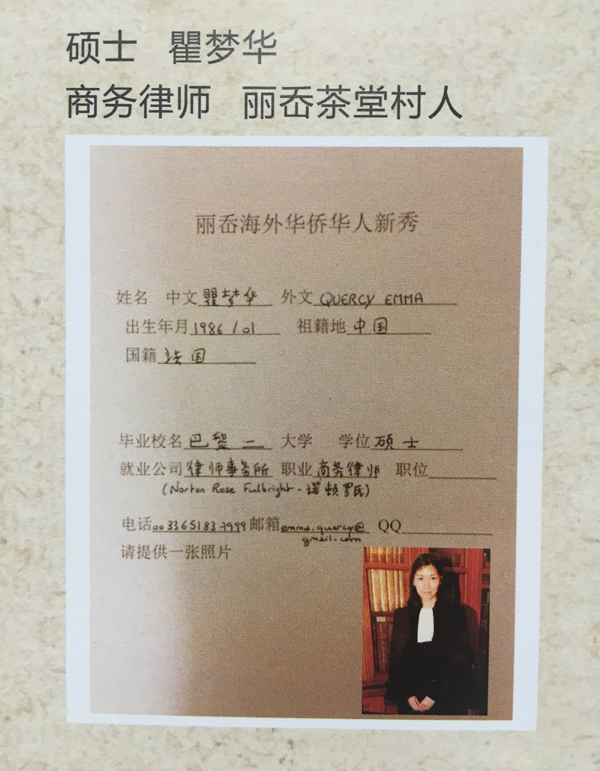 硕士 瞿梦华
商务律师 丽岙茶堂村人
丽岙海外华侨华人新秀
姓名 中文 瞿梦华 外文 QUERCY EMMA
出生年月 1986/01 祖籍地 中国
国籍 法国
毕业校名 巴黎二 大学 学位 硕士
就业公司 律师事务所 职业 商务律师 职位
(Norton Rose Fulbright - 诺顿罗氏)
电话 0033651837999 邮箱 emma.quercy@ QQ
gmail.com
请提供一张照片